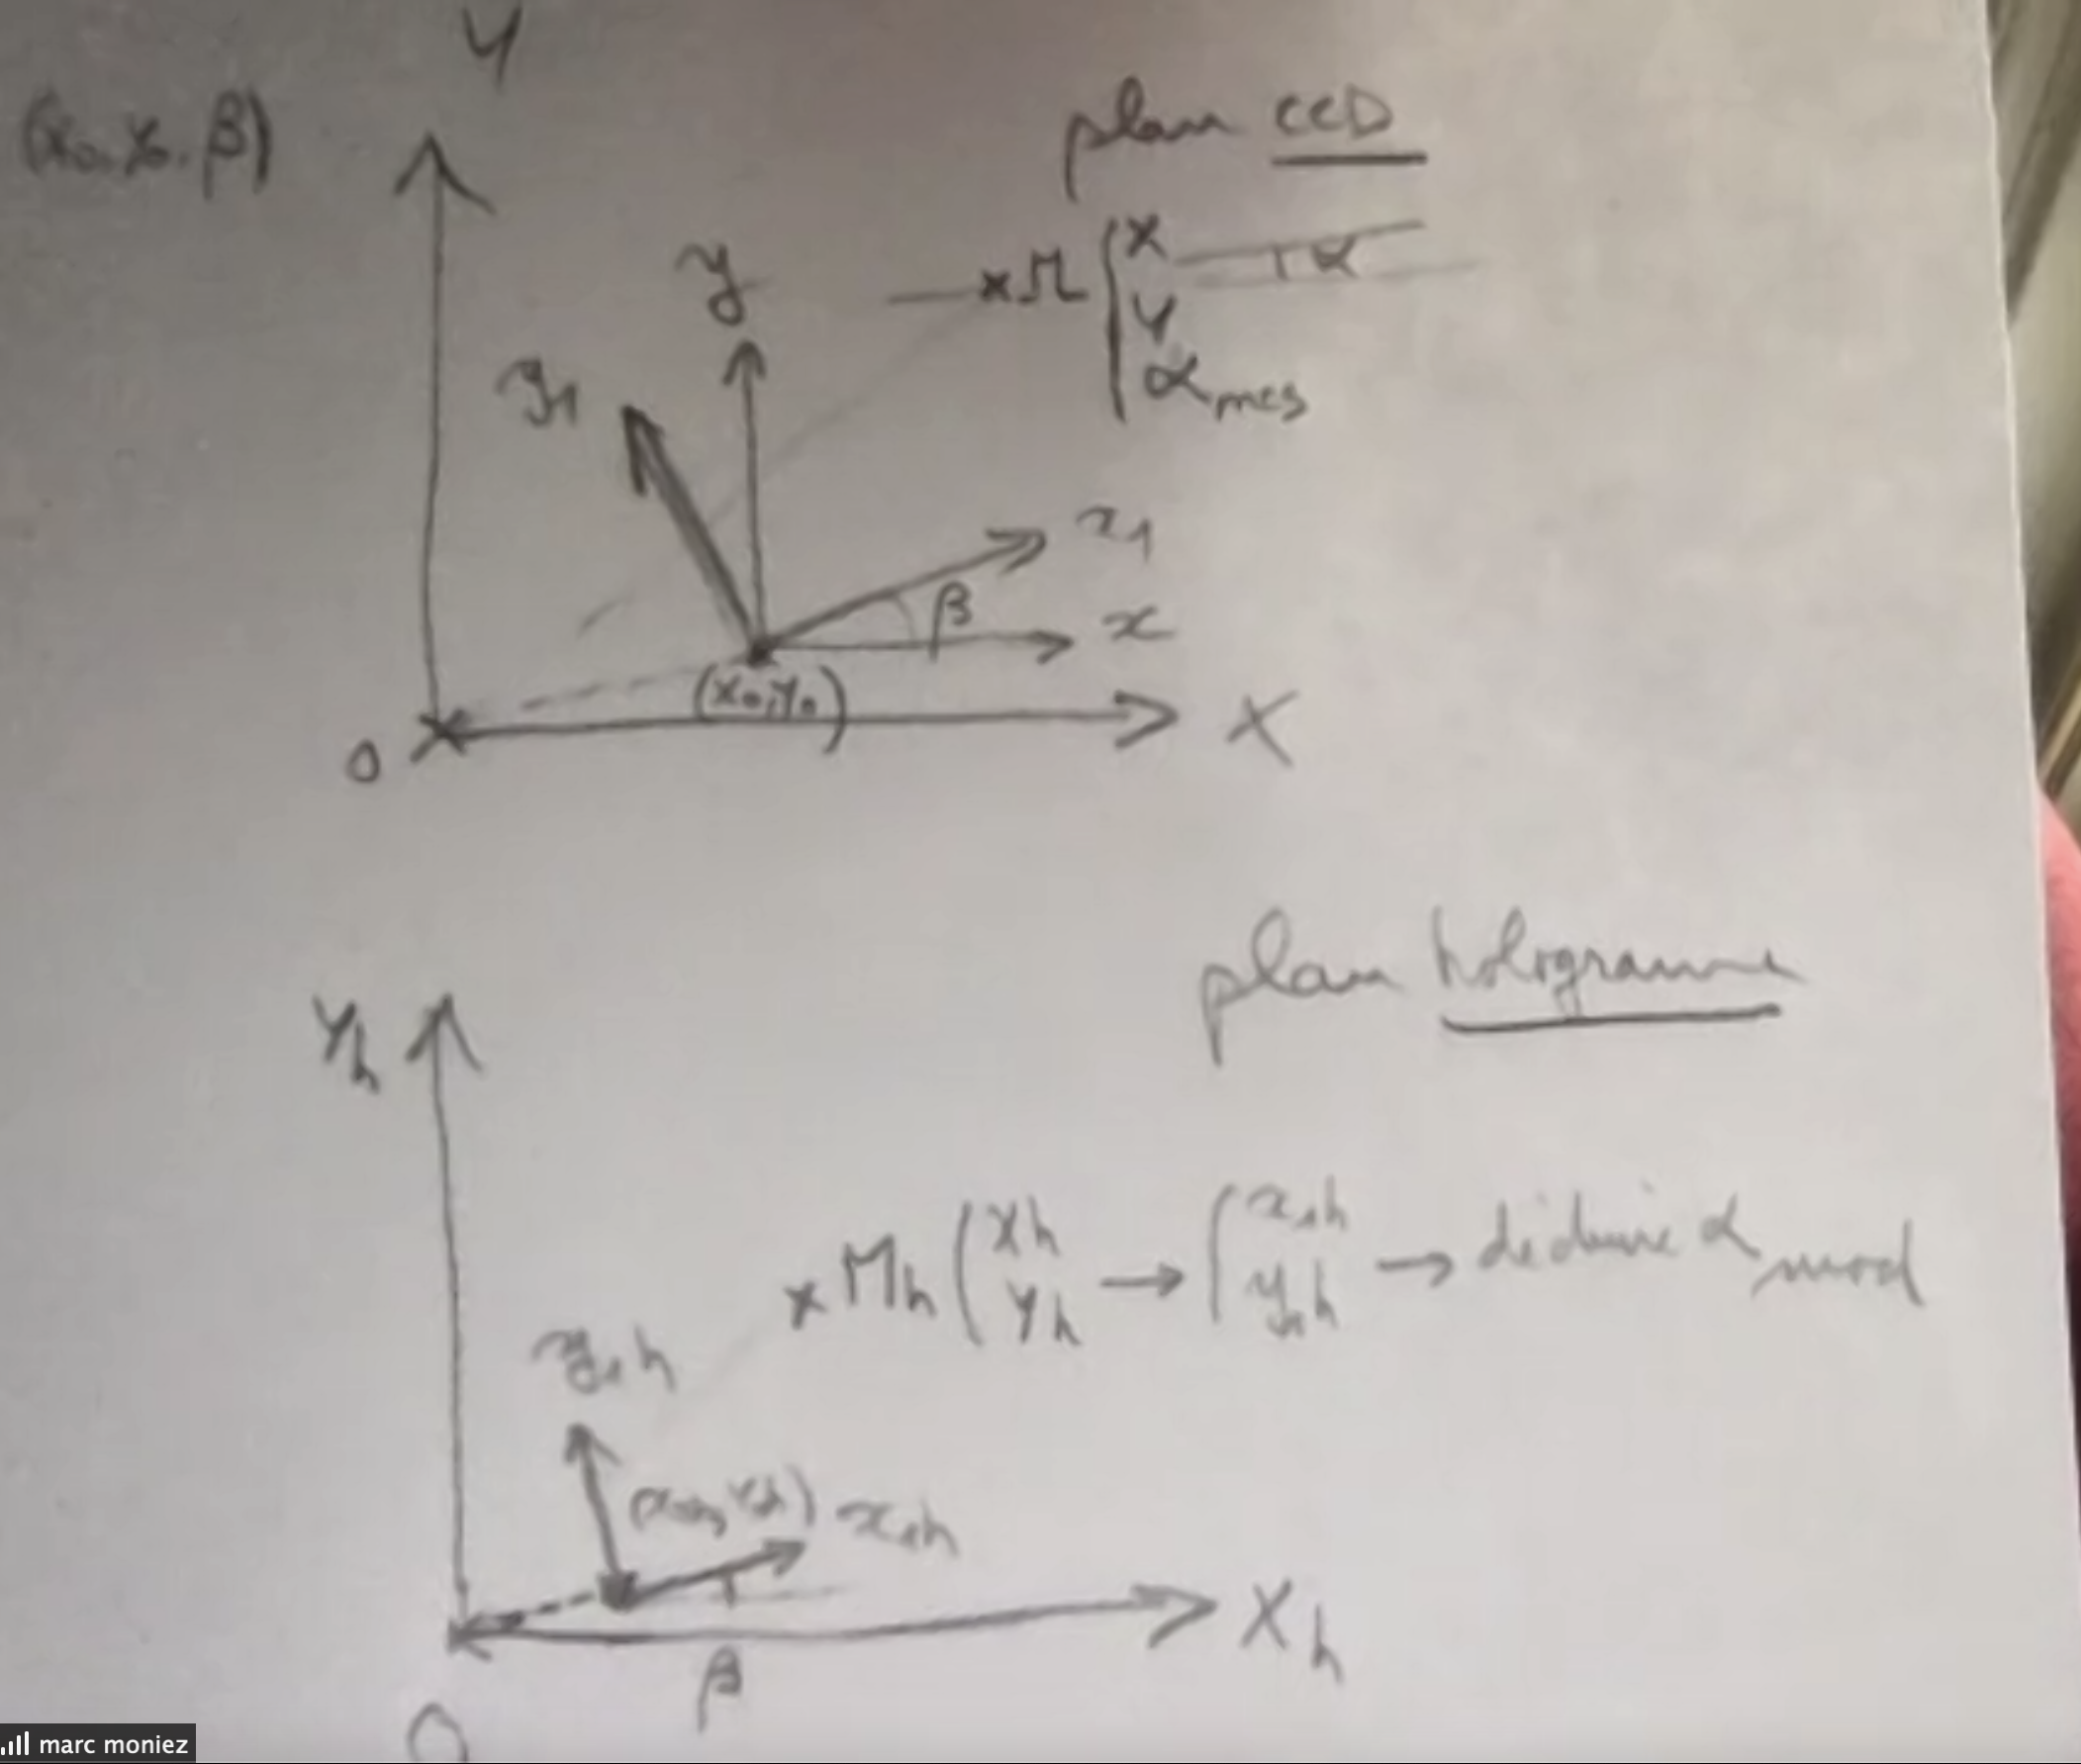 Y
(x₀, y₀, β)
plan CCD
y
×M
X
α
Y
α mes
y₁
x₁
β
x
(x₀, y₀)
O
X
plan hologramme
Yh
×Mh ( Xh → ( x₁h → déduire α mod
Yh y₁h
y₁h
x₁h
Xh
β
O
marc moniez